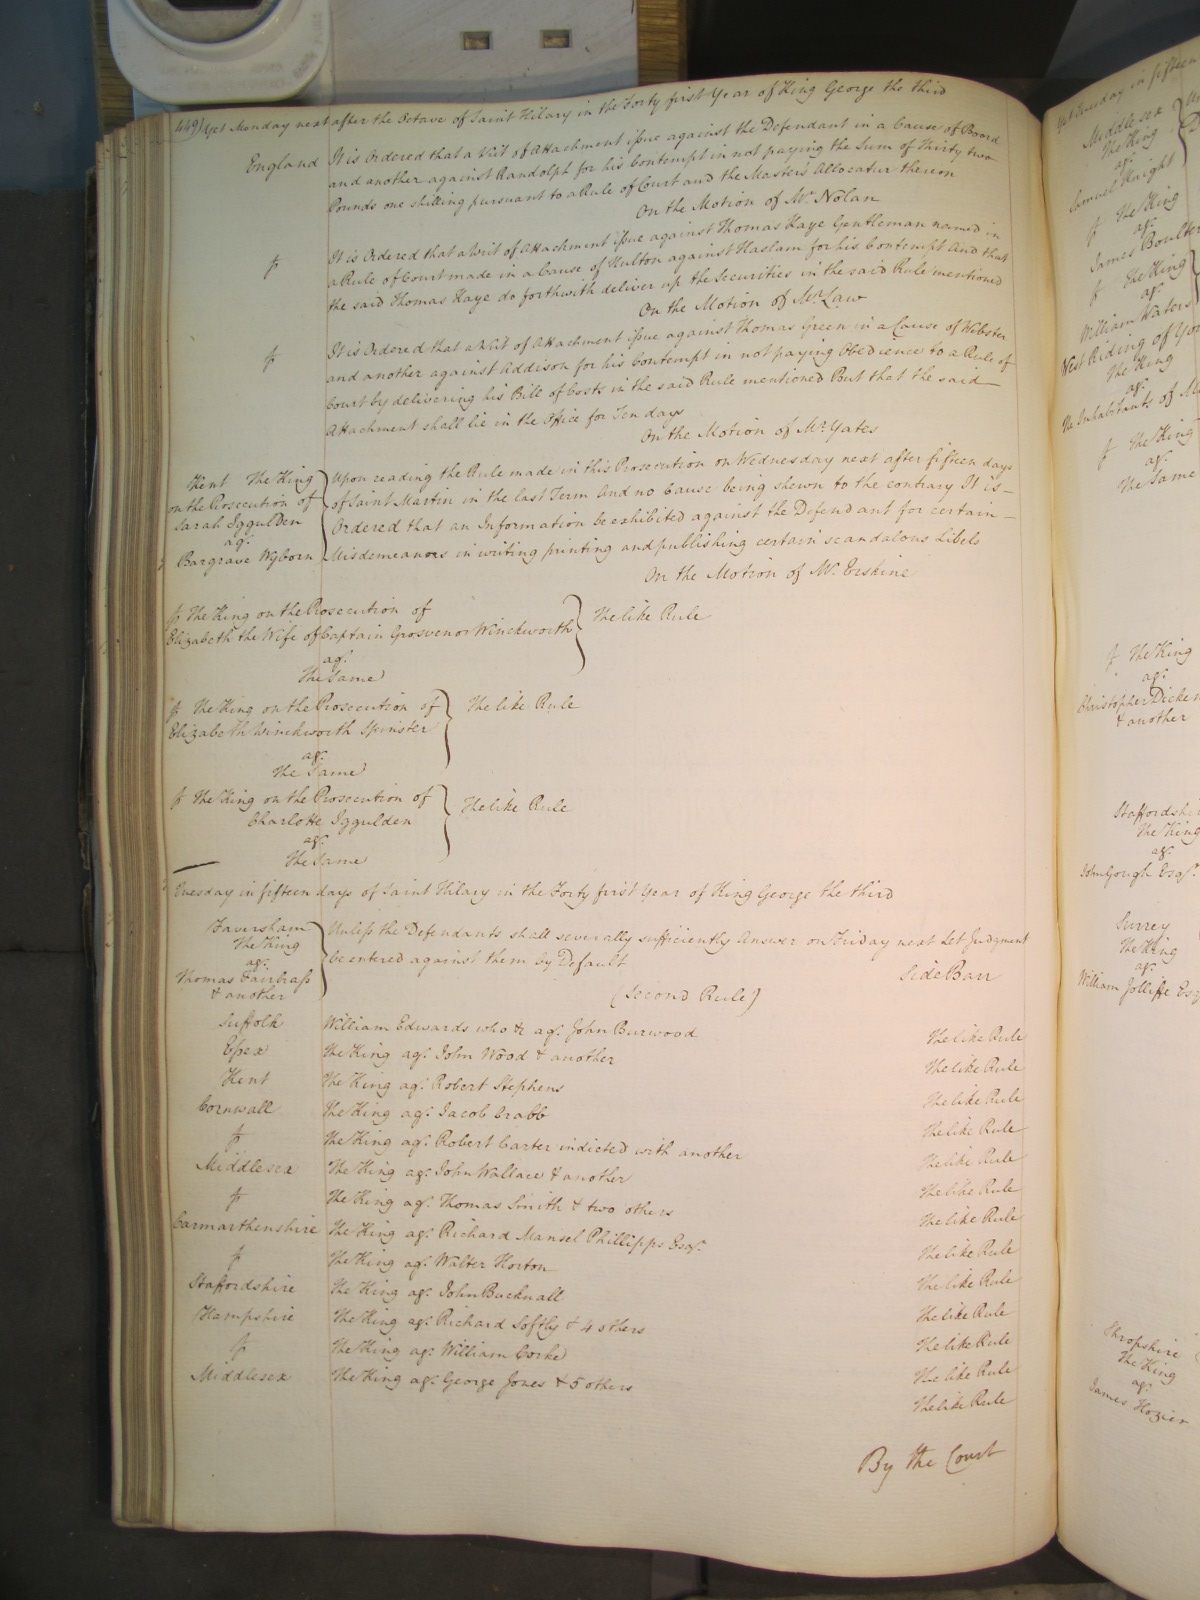 449) Yet Monday next after the Octave of Saint Hilary in the Forty first Year of King George the third
England It is Ordered that a Writ of Attachment issue against the Defendant in a Cause of Boord
and another against Randolph for his Contempt in not paying the Sum of Thirty two
Pounds one shilling pursuant to a Rule of Court and the Masters Allocatur thereon
On the Motion of Mr. Nolan
It is Ordered that a Writ of Attachment issue against Thomas Kaye Gentleman named in
a Rule of Court made in a Cause of Hulton against Haslam for his Contempt And that
the said Thomas Kaye do forthwith deliver up the Securities in the said Rule mentioned
On the Motion of Mr. Law
It is Ordered that a Writ of Attachment issue against Thomas Green in a Cause of Webster
and another against Addison for his Contempt in not paying Obedience to a Rule of
Court by delivering his Bill of Costs in the said Rule mentioned But that the said
Attachment shall lie in the Office for Ten days
On the Motion of Mr. Yates
Kent The King
on the Prosecution of
Sarah Iggulden
agt.
Bargrave Wyborn
Upon reading the Rule made in this Prosecution on Wednesday next after fifteen days
of Saint Martin in the last Term And no Cause being shewn to the contrary It is
Ordered that an Information be exhibited against the Defendant for certain
Misdemeanors in writing printing and publishing certain scandalous Libels
On the Motion of Mr. Erskine
The King on the Prosecution of
Elizabeth the Wife of Captain Grosvenor Winckworth
agt.
The Same
The like Rule
The King on the Prosecution of
Elizabeth Winckworth Spinster
agt.
The Same
The like Rule
The King on the Prosecution of
Charlotte Iggulden
agt.
The Same
The like Rule
Tuesday in fifteen days of Saint Hilary in the Forty first Year of King George the third
Faversham
The King
agt.
Thomas Fairbrass
& another
Unless the Defendants shall severally sufficiently Answer on Friday next Let Judgment
be entered against them by Default
Side Barr
(Second Rule)
Suffolk William Edwards who &c agt. John Burwood The like Rule
Essex The King agt. John Wood & another The like Rule
Kent The King agt. Robert Stephens The like Rule
Cornwall The King agt. Jacob Crabb The like Rule
The King agt. Robert Carter indicted with another The like Rule
Middlesex The King agt. John Wallace & another The like Rule
The King agt. Thomas Smith & two others The like Rule
Carmarthenshire The King agt. Richard Mansel Phillipps Esqr. The like Rule
The King agt. Walter Horton The like Rule
Staffordshire The King agt. John Bucknall The like Rule
Hampshire The King agt. Richard Softly & 4 others The like Rule
The King agt. William Corke The like Rule
Middlesex The King agt. George Jones & 5 others The like Rule
By the Court
Yet Tuesday in fifteen
Middlesex
The King
agt.
Samuel Knight
The King
agt.
James Boulter
The King
agt.
William Waters
West Riding of
The King
agt.
The Inhabitants of
The King
agt.
The Same
The King
agt.
Christopher
& another
The King
agt.
John Gough Esqr.
Surrey
The King
agt.
William Jolliffe
Shropshire
The King
agt.
James Hozier